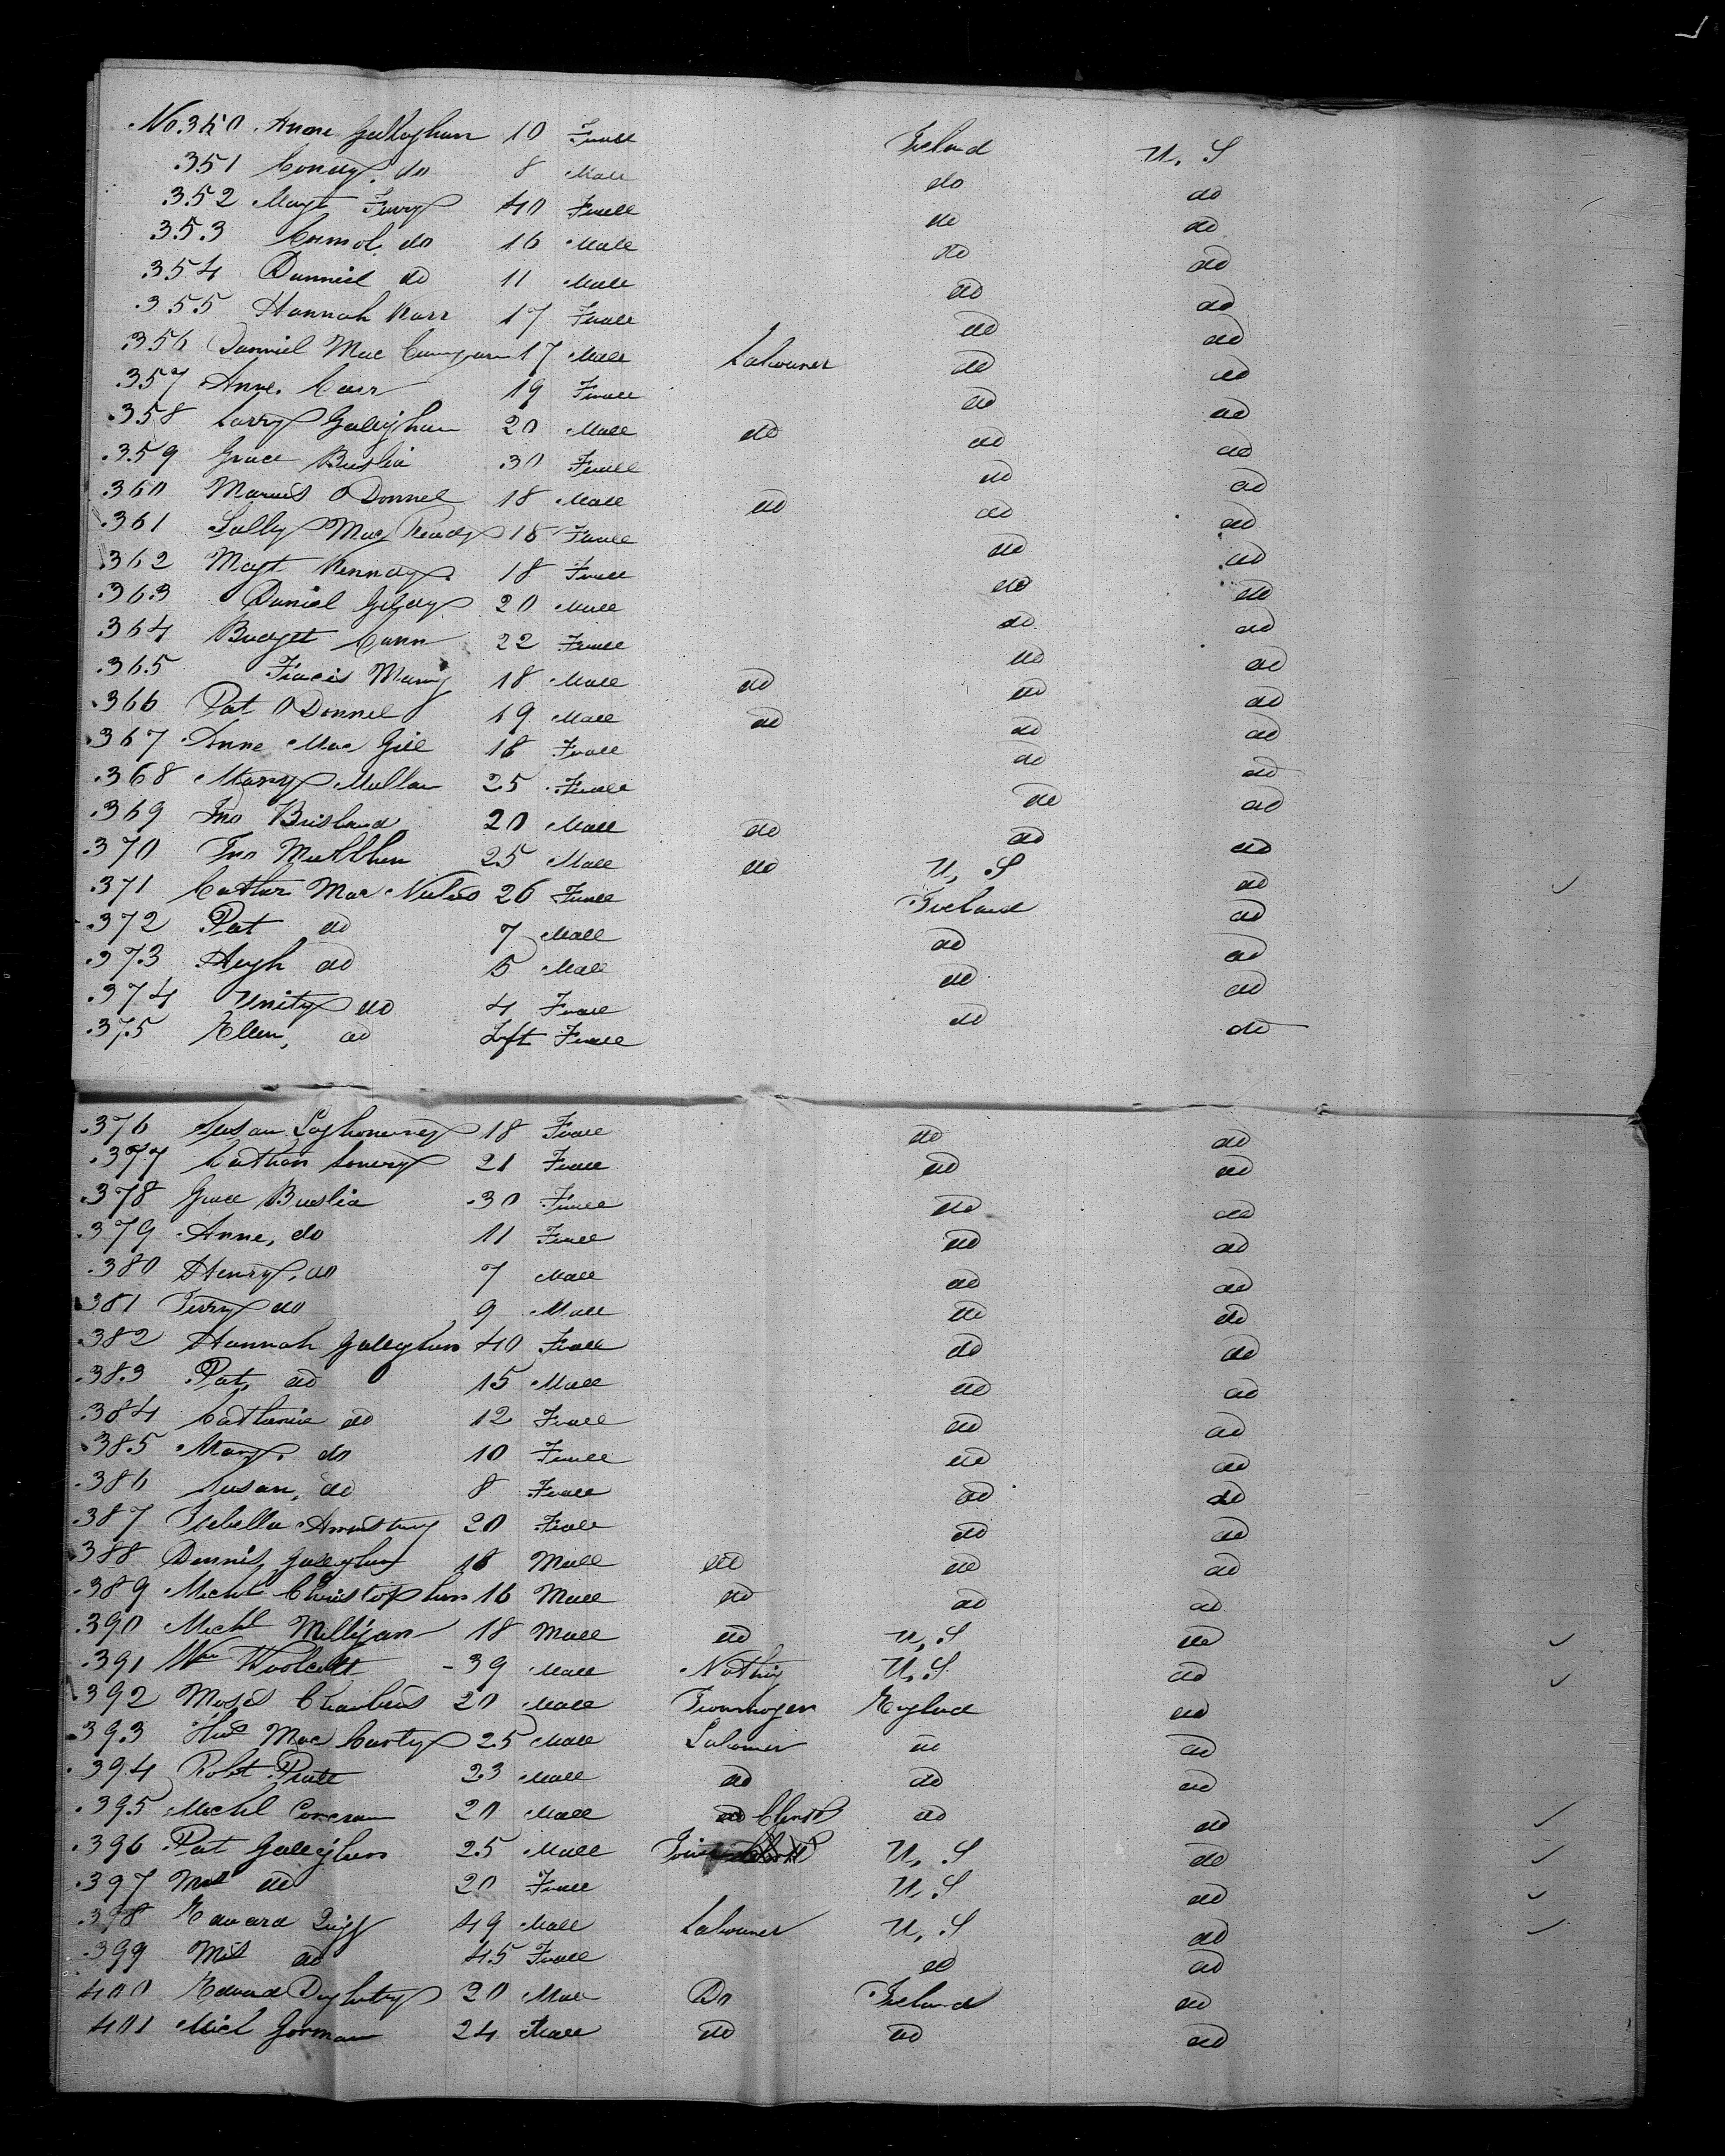 No. 350 Anne Gallaghan 10 Female Ireland U. S
351 Condy do 8 Male do do
352 Magt Ferry 40 Female do do
353 Cormol do 16 Male do do
354 Danniel do 11 Male do do
355 Hannah Karr 17 Female do do
356 Danniel Mac 17 Male Labourer do do
357 Anne Carr 19 Female do do
358 Larry Galleghan 20 Male do do do
359 Grace Breslia 30 Female do do
360 Manus O Donnel 18 Male do do do
361 Sally Mac Ready 18 Female do do
362 Magt Kennay 18 Female do do
363 Daniel 20 Male do do
364 Bridget Cann 22 Female do do
365 Frances 18 Male do do do
366 Pat O Donnel 19 Male do do do
367 Anne Mac Gill 18 Female do do
368 Mary Mullan 25 Female do do
369 Jno Brisland 20 Male do do do
370 Jno 25 Male do U, S do
371 Cathar Mac 26 Female Ireland do
372 Pat do 7 Male do do
373 Hugh do 5 Male do do
374 Unity do 4 Female do do
375 Ellen, do Inft Female do do
376 Susan 18 Female do do
377 Cathan 21 Female do do
378 Grace Breslia 30 Female do do
379 Anne, do 11 Female do do
380 Henry, do 7 Male do do
381 Terry do 9 Male do do
382 Hannah Galleghan 40 Female do do
383 Pat, do 15 Male do do
384 Catharine do 12 Female do do
385 Mary, do 10 Female do do
386 Susan, do 8 Female do do
387 Isebella Armstrong 20 Female do do
388 Dennis Galleghan 18 Male do do do
389 Michl Christophers 16 Male do do do
390 Michl Milligan 18 Male do U, S do
391 Wm Woolcott 39 Male Nothing U. S. do
392 Moses Chambers 20 Male England do
393 Thos Mac Carty 25 Male Labourer do do
394 Robt Pratt 23 Male do do do
395 Michl Corcran 20 Male Clerk do do
396 Pat Galleghan 25 Male U, S do
397 Mrs do 20 Female U, S do
398 Edward Quigg 49 Male Labourer U, S do
399 Mrs do 45 Female do do
400 Edward Doghertey 20 Male Do Ireland do
401 Micl Gorman 24 Male do do do